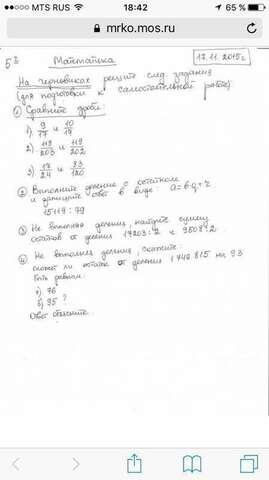 MTS RUS
18:42
65 %
mrko.mos.ru
5
Математика
17.11.2015г.
На черновиках решите след. задания
(для подготовки к самостоятельной работе)
① Сравните дроби:
1) 9/77 и 10/19
2) 119/203 и 119/202
3) 17/24 и 83/120
② Выполните деление с остатком
и запишите ответ в виде: a = b·q + r
15119 : 79
③ Не выполняя деления, найдите сумму
остатков от деления 17203 : 2 и
④ Не выполняя деления, скажите:
может ли остаток от деления 1746815 на 93
быть равным:
а) 76
б) 95 ?
Ответ объясните.